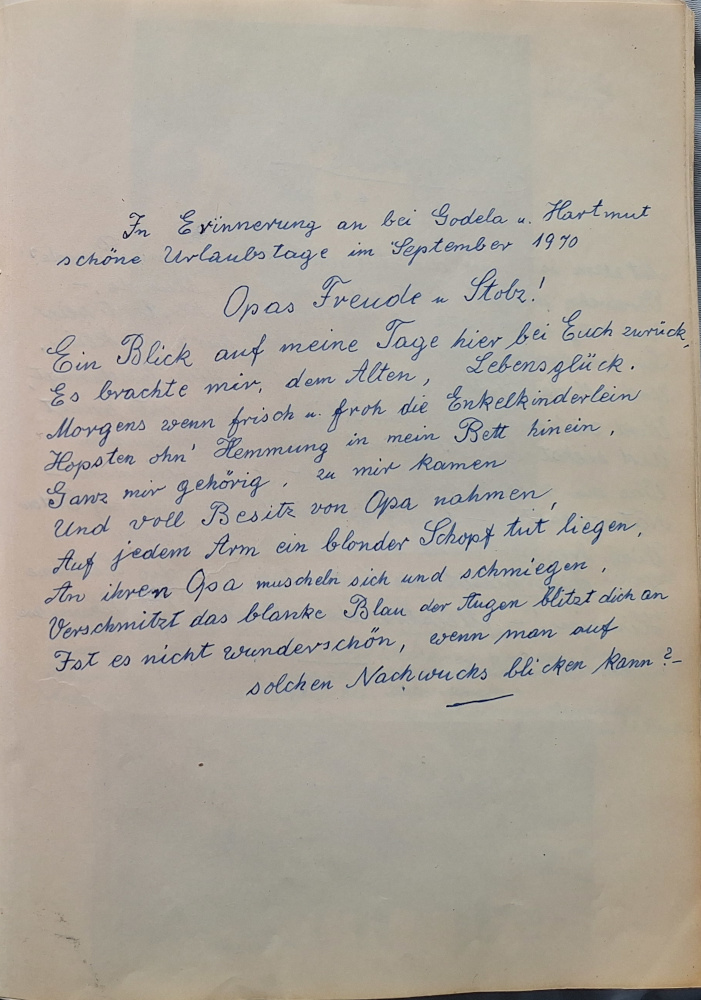 In Erinnerung an bei Godela u. Hartmut
schöne Urlaubstage im September 1970
Opas Freude u Stolz!
Ein Blick auf meine Tage hier bei Euch zurück,
Es brachte mir, dem Alten, Lebensglück.
Morgens wenn frisch u. froh die Enkelkinderlein
Hopsten ohn' Hemmung in mein Bett hinein,
Ganz mir gehörig, zu mir kamen
Und voll Besitz von Opa nahmen,
Auf jedem Arm ein blonder Schopf tut liegen,
An ihren Opa muscheln sich und schmiegen,
Verschmitzt das blanke Blau der Augen blitzt dich an
Ist es nicht wunderschön, wenn man auf
solchen Nachwuchs blicken kann?-